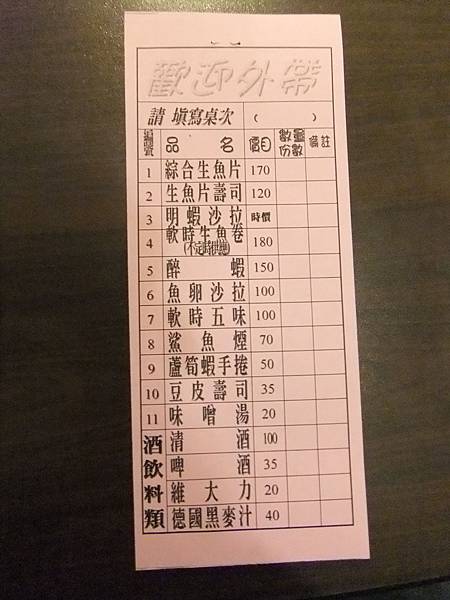 歡迎外帶
請 填寫桌次 ( )
編號 品名 價目 數量份數 備註
1 綜合生魚片 170
2 生魚片壽司 120
3 明蝦沙拉 時價
4 軟時生魚卷 (不定時供應) 180
5 醉蝦 150
6 魚卵沙拉 100
7 軟時五味 100
8 鯊魚煙 70
9 蘆筍蝦手捲 50
10 豆皮壽司 35
11 味噌湯 20
酒飲料類
清酒 100
啤酒 35
維大力 20
德國黑麥汁 40